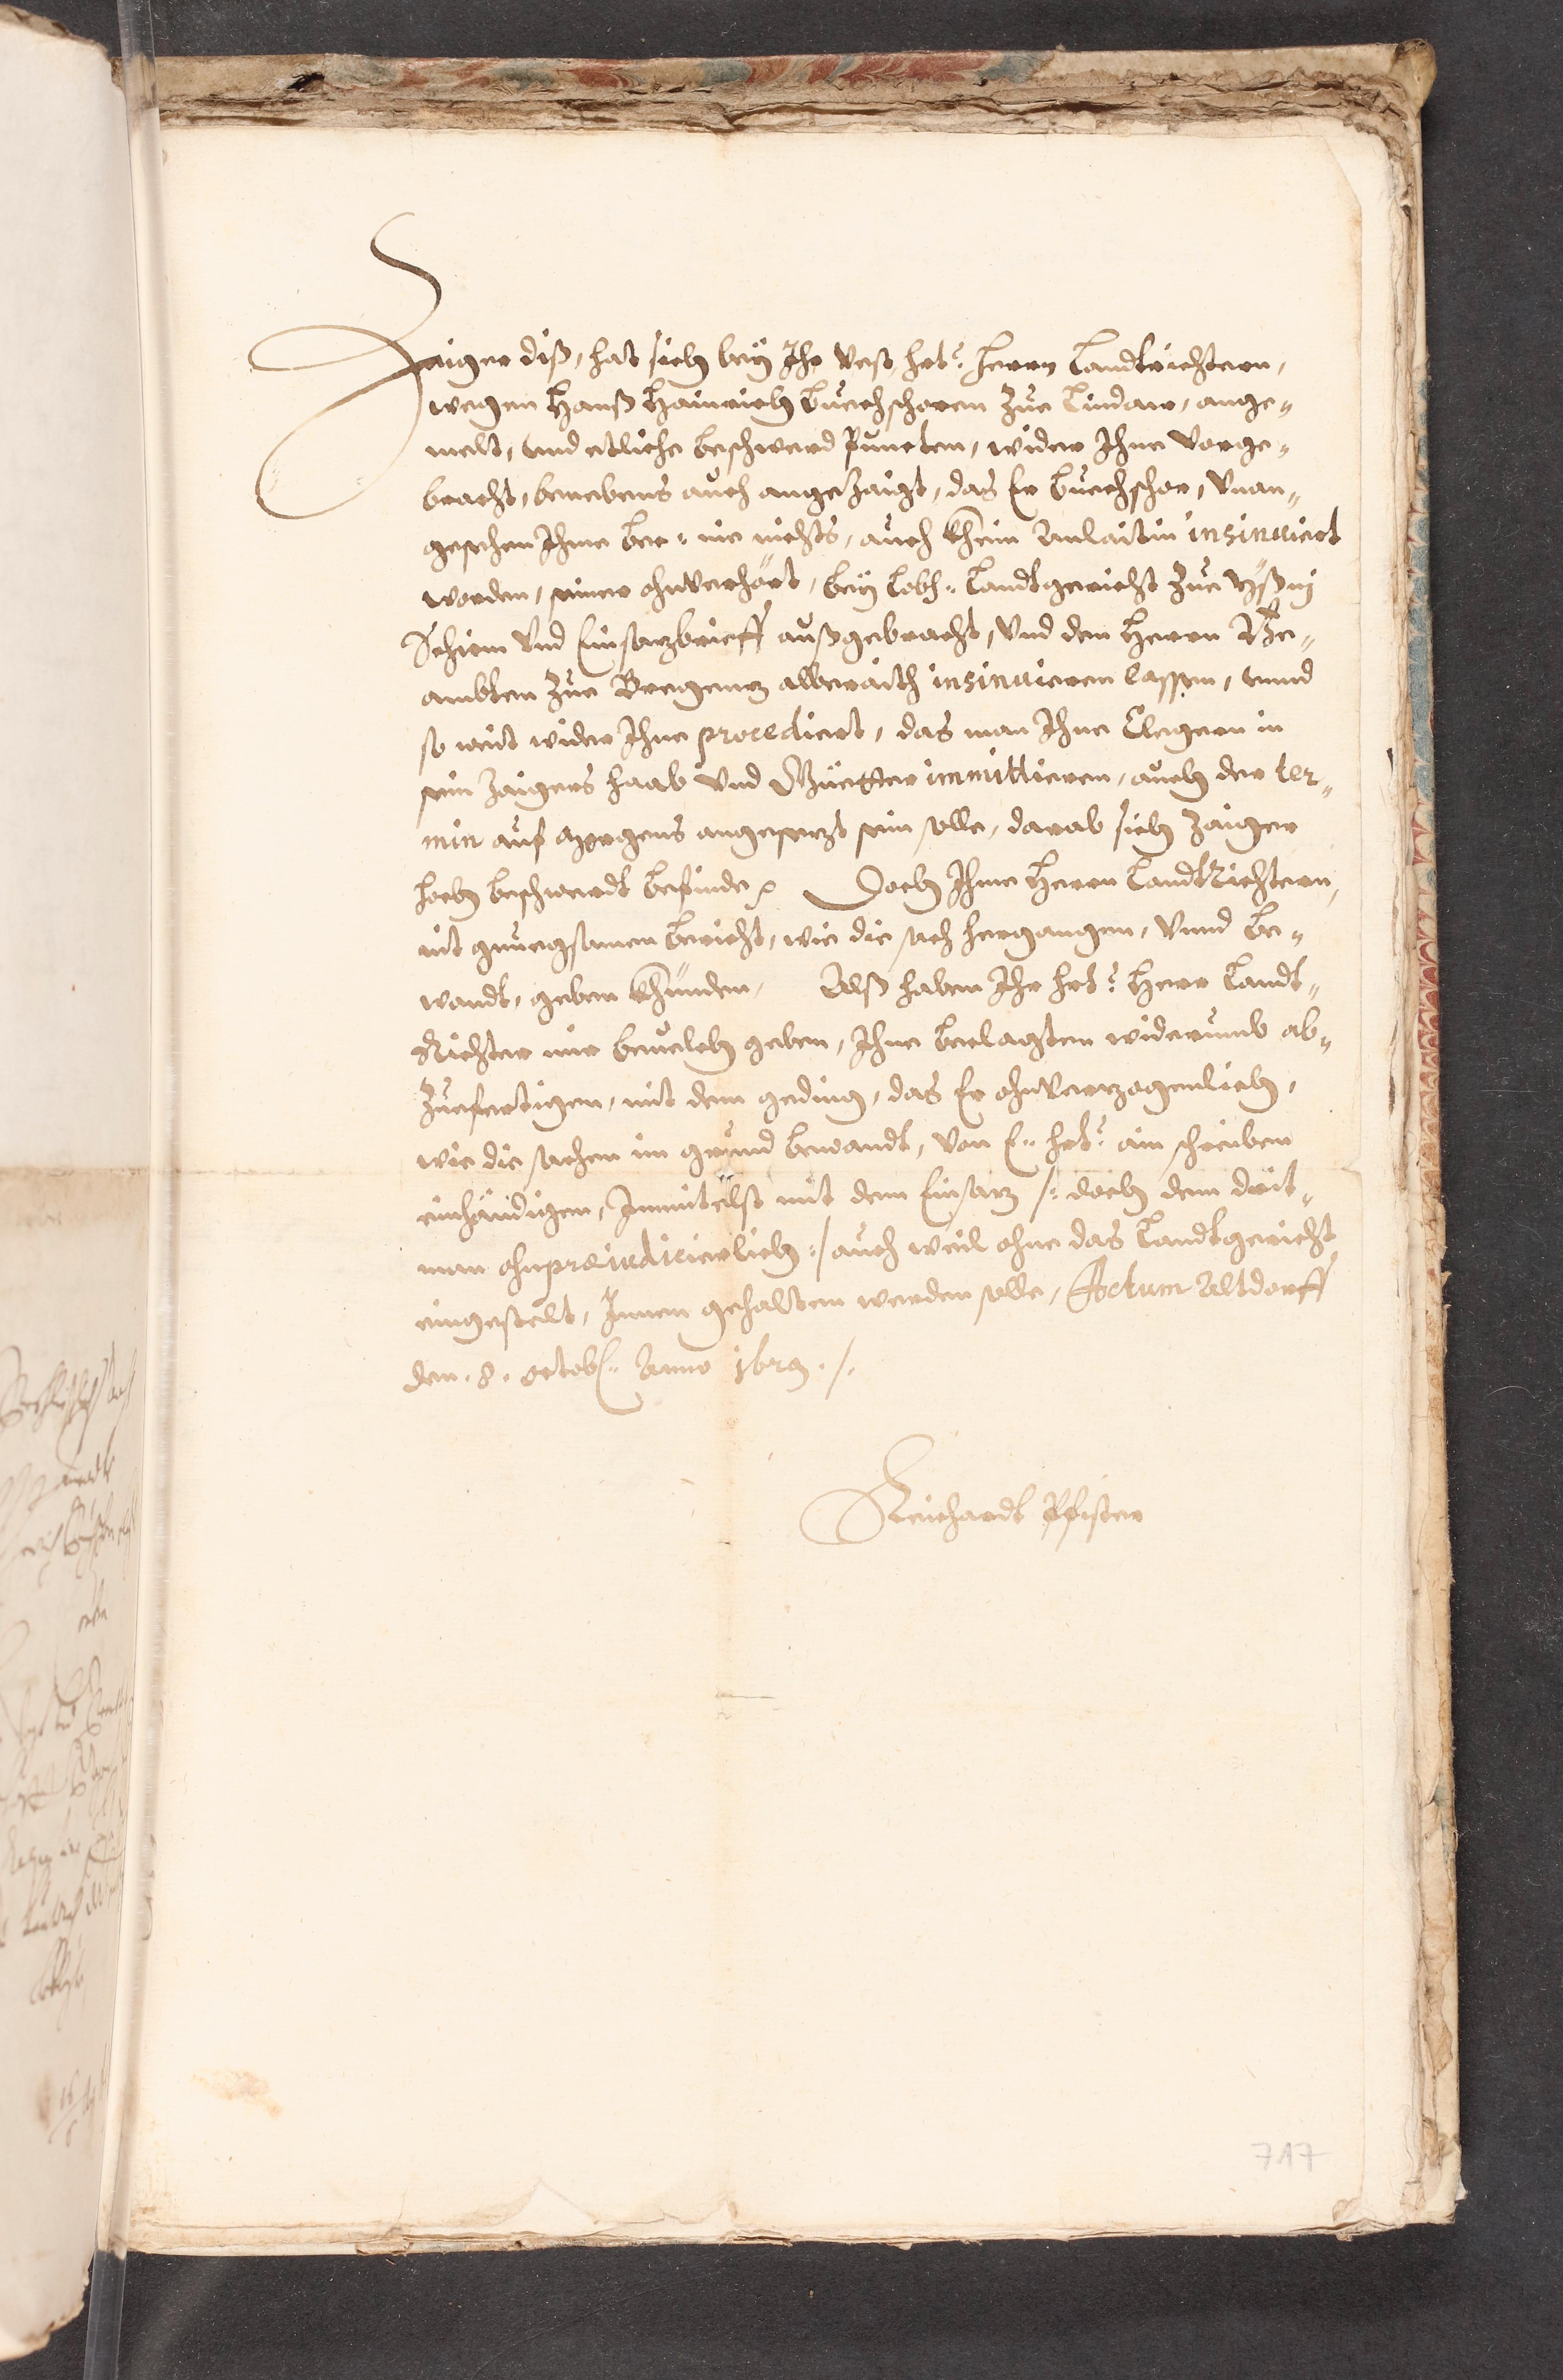 Zaiger diß, hat sich bey Ihr Vest hrt: herrn Landtrichtern,
wegen Hanß Hainrich buechschoren Zue Lindaw, ange-
melt, und etliche beschwerd Puncten, wider Ihne vorge-
bracht, benebens auch angezaigt, das Er buechschor, Unan-
gesehen Ihme hie nichts, auch khein Anlaitin insinuiert
worden, seiner ohnverhört, bey Lobl: Landtgericht Zue Yßnj
Schirm und Einsazbrieff außgebracht, Und den Herrn Be-
ambten Zue Bregenz albraith insinuieren lassen, unnd
so weit wider Ihne procediert, das man Ihne Clegern in
sein Zaigers haab Und Güetter immittieren, auch der ter-
min auf Morgens angesezt sein solle, darab sich Zaiger
hoch beschwerdt befinde, Doch Ihme Herrn Landtrichtern,
nit genuegsamen bericht, wie die sach hergangen, Unnd be-
wandt, geben khünden, Alß haben Ihr hrt: Herr Landt-
Richter mir bevelch geben, Ihne beclagten widerumb ab-
Zuefertigen, mit dem geding, das Er ohnverzogenlich,
wie die sachen im grund bewandt, von E: hrt: ain schreiben
einhändigen, Inmitelst mit dem Einsaz /: doch dem drit-
man ohnpreiudicierlich :/ auch weil ohne das Landtgericht
eingestelt, Innen gehalten werden solle, Actum Altdorff
den .8. octob: Anno 1629 ./.
Reichardt Pfister
717